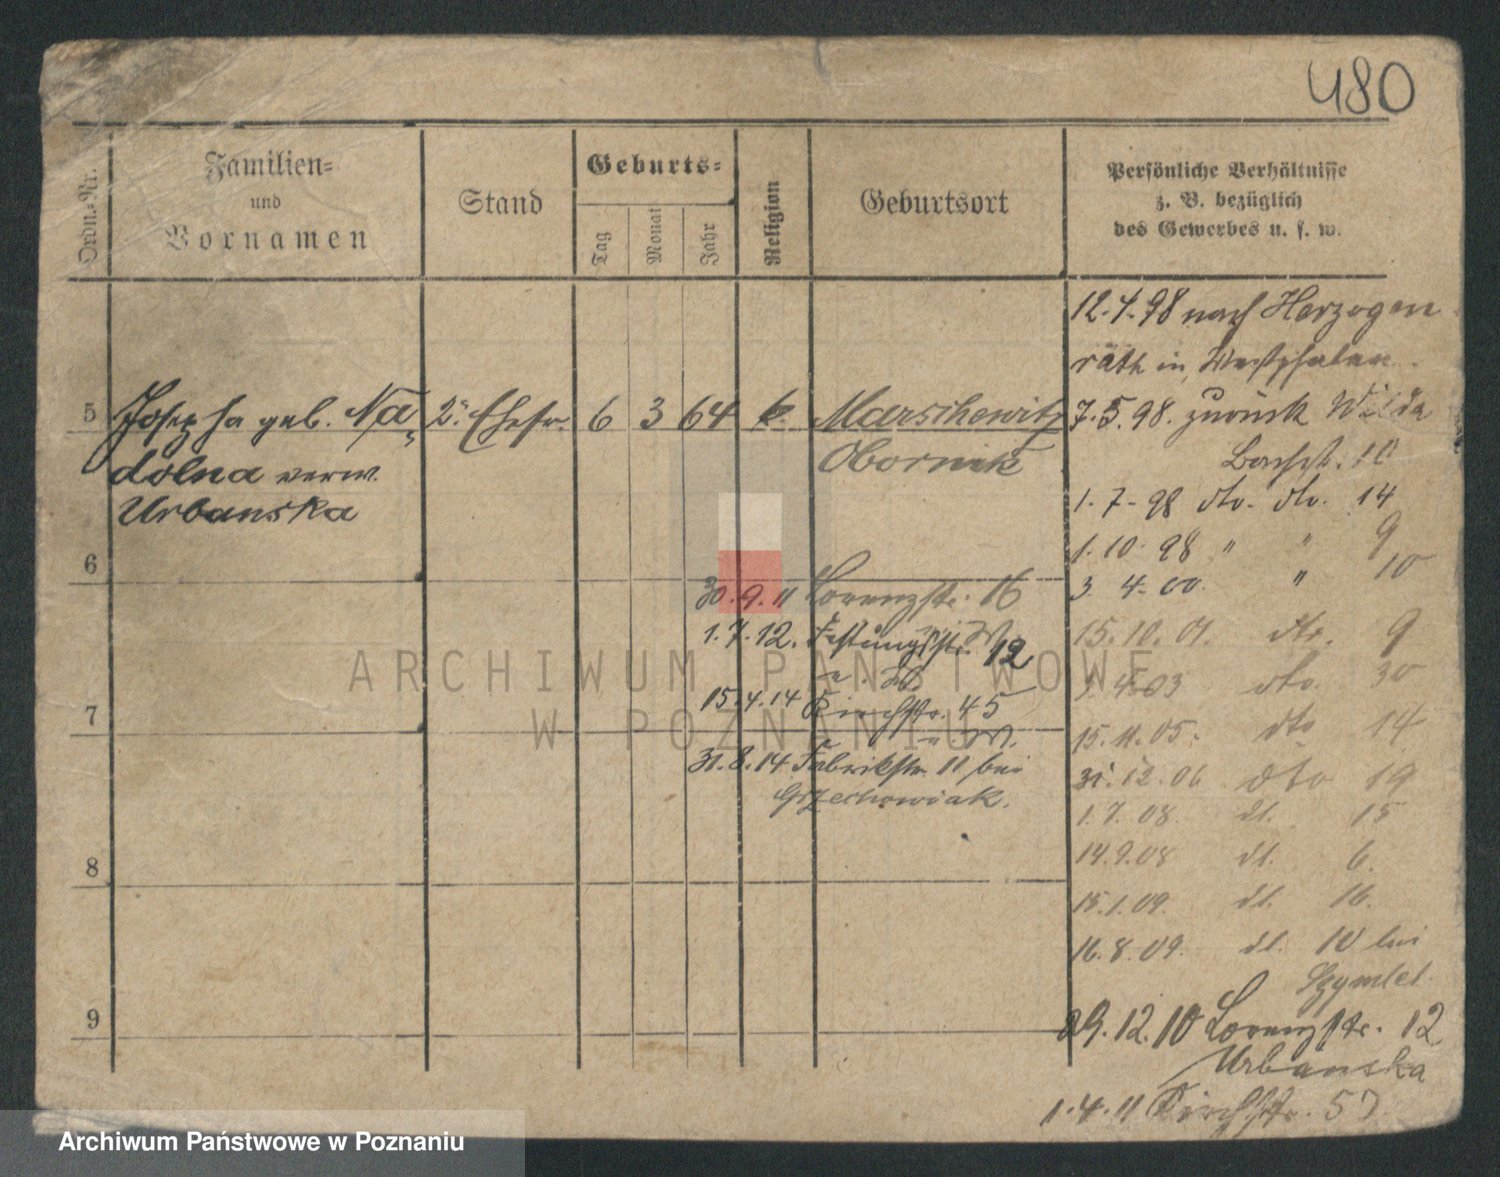 480
Ordn.-Nr.
Familien-
und
Vornamen
Stand
Geburts-
Tag
Monat
Jahr
Religion
Geburtsort
Persönliche Verhältnisse
z. B. bezüglich
des Gewerbes u. s. w.
12.4.98 nach Herzogen
rath in Westphalen.
5 Josepha geb. Na= 2. Ehefr. 6 3 64 k. Marschewitz
dolna verw. Obornik
Urbanska
7.5.98. zurück Wilda
Bachstr. 10
1.7-98 dto. dto. 14
1.10.98 " " 9
3. 4.00. " 10
15.10.01. dto. 9
1.4.03 dto. 30
15.11.05. dto 14
31.12.06 dto 19
1.7.08. dt. 15
14.9.08 dt. 6.
15.1.09. dt. 16.
16.8.09. dt. 10 bei
29.12.10 Lorenzstr. 12
Urbanska
1.4.11 Kirchstr. 57
6
30.9.11 Lorenzstr. 16
1.7.12. Festungsstr. 12
7
15.4.14 Kirchstr. 45
31.8.14 Fabrikstr. 11 bei
Grzechowiak.
8
9
ARCHIWUM PAŃSTWOWE
W POZNANIU
Archiwum Państwowe w Poznaniu